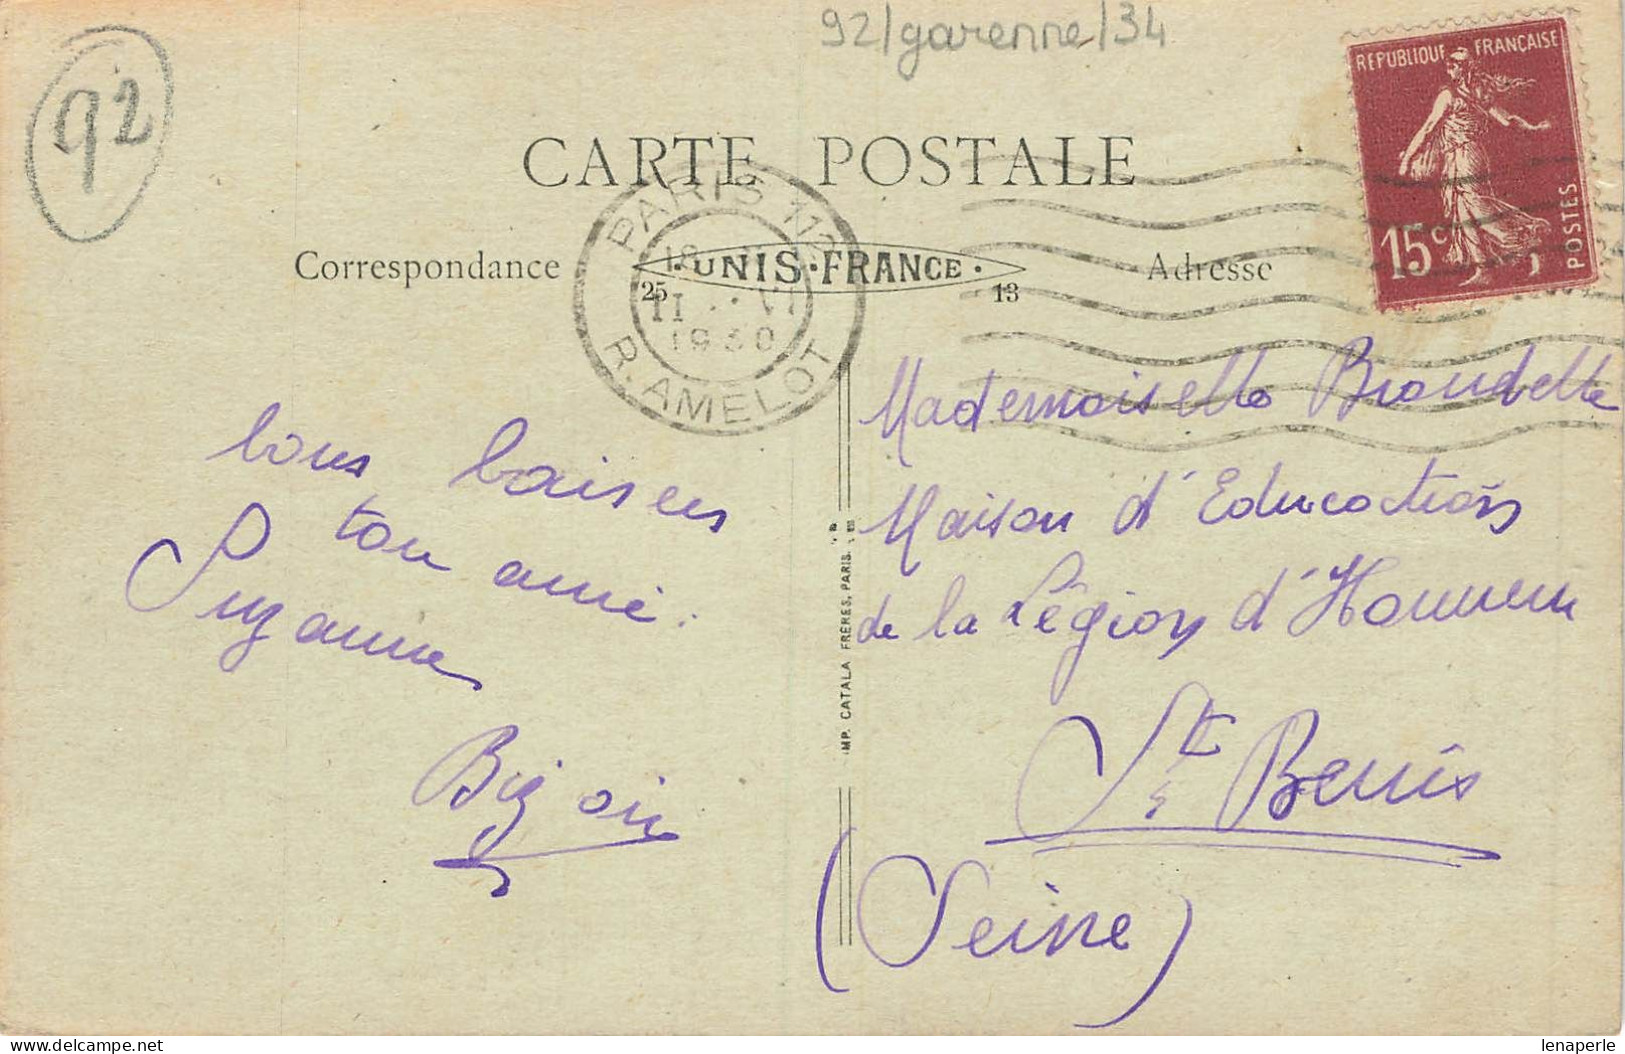 92/garenne/34
92
RÉPUBLIQUE FRANÇAISE
15c
POSTES
CARTE POSTALE
PARIS 112
Correspondance
UNIS-FRANCE
Adresse
25
13
18
II VI
1930
R. AMELOT
bons baisers
ton amie.
Suzanne
Mademoiselle
Maison d'Education
de la Légion d'Honneur
St Denis
(Seine)
IMP. CATALA FRÈRES, PARIS
lenaperle